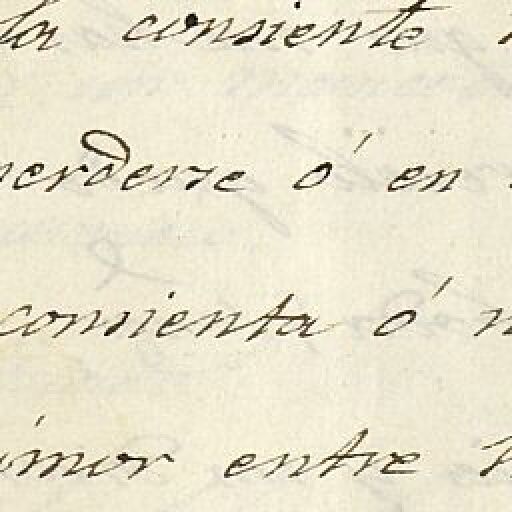 la consiente
perderse ó en
consienta ó
entre